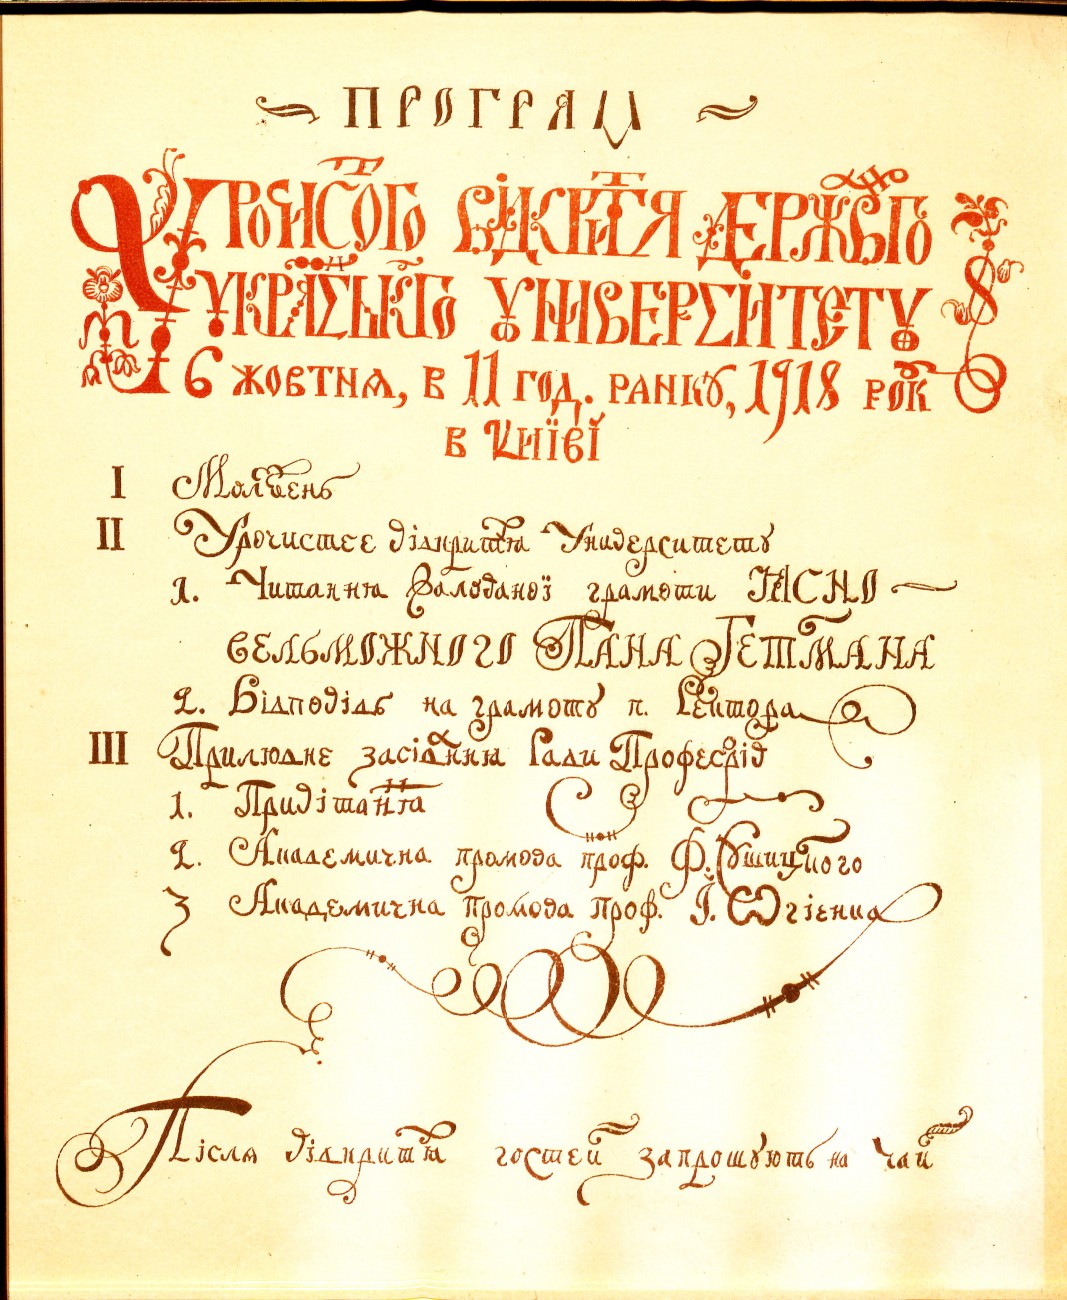 ПРОГРАМ
УРОЧИСТОГО ВІДКРИТТЯ ДЕРЖАВНОГО
УКРАЇНСЬКОГО УНІВЕРСИТЕТУ
6 ЖОВТНЯ, В 11 ГОД. РАНКУ, 1918 РОКУ
В КИЇВІ
I Молебень
II Урочистее відкриття Університету
1. Читання жалованої грамоти ЯСНО-
ВЕЛЬМОЖНОГО ПАНА ГЕТМАНА
2. Відповідь на грамоту п. Ректора
III Прилюдне засідання Ради Професорів
1. Привітання
2. Академична промова проф. Ф. Сушицького
3 Академична промова проф. І. Огієнка
Після відкриття гостей запрошують на чай